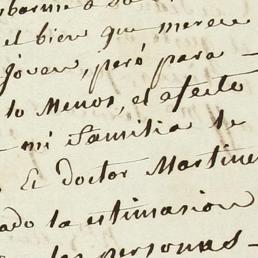 el bien que merece
Joven, peró para
lo Menos, el afecto
mi Familia le
El Doctor Martine
ado la estimasion
las personas